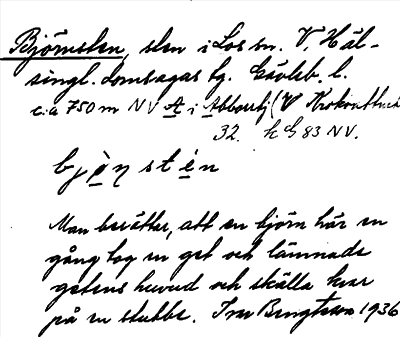 Björnsten, sten i Los sn. V. Häl-
singl. domsagas tg. Gävleb. l.
c:a 750 m NV A i Abborrbj (V
32. h G 83 NV.
bjö̀ṇ stén
Man berättar, att en björn här en
gång tog en get och lämnade
getens huvud och skälla kvar
på en stubbe. Ivar Bengtsson 1936